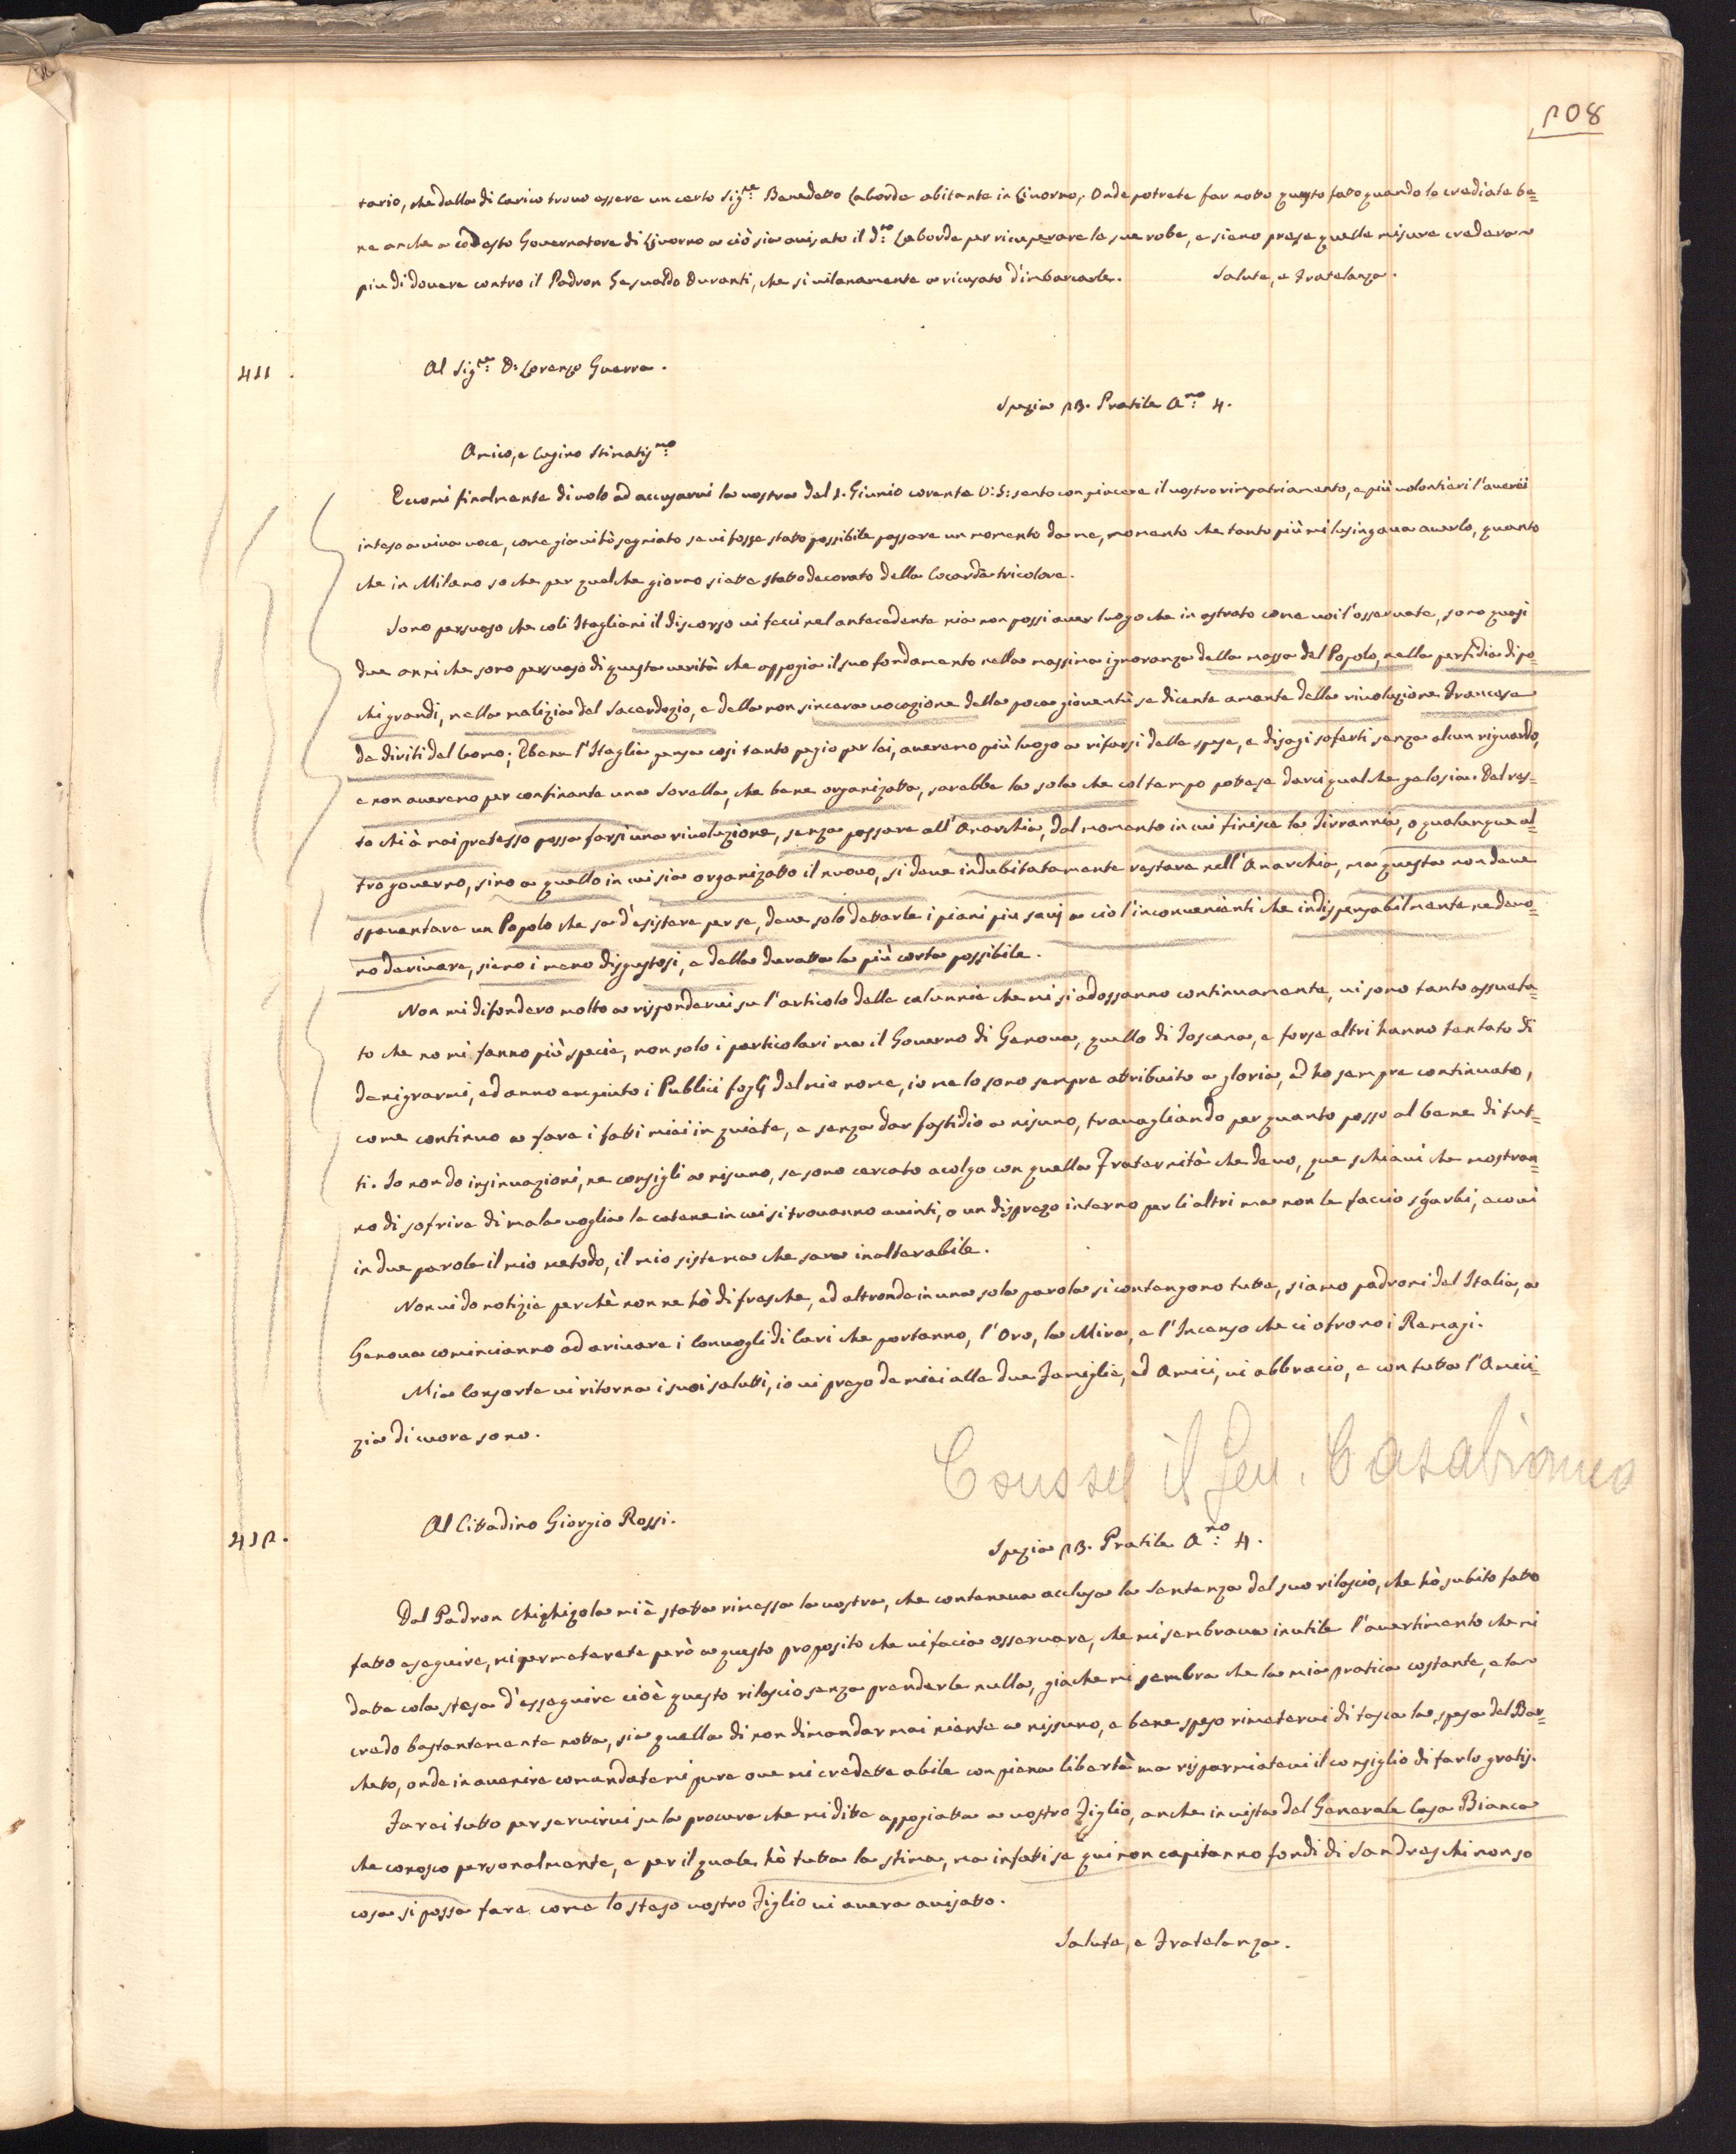 208
tario, che dalla di Carico trovo essere un certo Sig.re Benedetto Laborde abitante in Livorno; Onde potrete far notto questo fato quando lo crediate be=
ne anche a codesto Governatore di Livorno a ciò sia avisato il d.to Laborde per ricuperare le sue robe, e siano prese quelle misure crederà
piu di dovere contro il Padron Gesualdo Duranti, che si vilanamente a ricusato d'imbarcarle. Salute, e Fratelanza.
411.
Al Sig.re D: Lorenzo Guerra.
Spezia 23. Pratile A.no 4.
Amico, e Cugino Stimatis.mo
Eccomi finalmente di volo ad accusarvi la vostra del 1. Giunio corente V: S: sento con piacere il vostro rimpatriamento, e più volontieri l'averei
inteso a viva voce, come già vi tò segniato se vi fosse stato possibile passare un momento da me, momento che tanto più mi lusingava averlo, quanto
che in Milano so che per qualche giorno siette statto decorato della Cocarda tricolore.
Sono persuaso che coli Itagliani il discorso vi feci nel antecedente mia non possi aver luogo che in astrato come voi l'osservate, sono quasi
due anni che sono persuaso di questa verità che appogia il suo fondamento nella massima ignoranza della massa del Popolo, nella perfidia di po=
chi grandi, nella malizia del Sacerdozio, e della non sincera vocazione della poca gioventù se dicente amante della rivoluzione Francese
de diriti del Uomo; Ebene l'Itaglia pensa cosi tanto pegio per lei, averemo più luogo a rifarsi delle spese, e disagi soferti senza alcun riguardo,
e non averemo per confinante una Sorella, che bene organizatta, sarebbe la sola che col tempo potesse darci qualche gelosia. Del res=
to chi à mai pretesso possa farsi una rivoluzione, senza passare all'Anarchia, dal momento in cui finisce la Tirrannia, o qualunque al=
tro governo, sino a quello in cui sia organizatto il nuovo, si deve indubitatamente restare nell'Anarchia, ma questa non deve
spaventare un Popolo che sa d'esistere per se, deve solo dettarle i piani piu savj a ciò l'inconvenienti che indispensabilmente ne devo=
no derivare, siano i meno disgustosi, e della duratta la più corta possibile.
Non mi difondero molto a rispondervi su l'articolo delle calunnie che mi si adossanno continuamente, vi sono tanto assuefa=
to che no mi fanno più specie, non solo i particolari ma il Governo di Genova, quello di Toscana, e forse altri hanno tentato di
denigrarmi, ed anno empiuto i Publici foglj del mio nome, io me lo sono sempre atribuito a gloria, ed ho sempre continuato,
come continuo a fare i fatti miei in quiete, e senza dar fastidio a nisuno, travagliando per quanto posso al bene di tut=
ti. Io non do insinuazioni, ne consigli a nisuno, se sono cercato acolgo con quella Fraternità che devo, que schiavi che mostran=
no di sofrire di mala voglia le catene in cui si trovanno avinti, o un disprezo interno per li altri ma non le faccio sgarbi, ecovi
in due parole il mio metodo, il mio sistema che sara inalterabile.
Non vi do notizie perchè non ne hò di fresche, ed altronde in una sola parola si contengono tutte, siamo padroni del Italia, a
Genova comincianno ad arivare i Convogli di Cari che portanno, l'Oro, la Mira, e l'Incenso che ci ofrono i Remagi.
Mia Consorte vi ritorna i suoi saluti, io vi prego de miei alle due Famiglie, ed Amici, vi abbracio, e con tutta l'Amici=
zia di cuore sono.
il Gen. Casabianca
412.
Al Cittadino Giorgio Rossi.
Spezia 23. Pratile A.no 4.
Dal Padron Chighizola mi è statta rimessa la vostra, che conteneva acclusa la Sentenza del suo rilascio, che hò subito fatto
fatto eseguire, mi permeterete però a questo proposito che vi facia osservare, che mi sembrava inutile l'avertimento che mi
date cola stesa d'esseguire cioè questo rilascio senza prenderle nulla, giache mi sembra che la mia pratica costante, e la
credo bastantemente notta, sia quella di non dimandar mai niente a nissuno, e bene speso rimetervi di tasca la spesa del Bar=
cheto, onde in avenire comandatemi pure ove mi credette abile con piena libertà ma risparmiatevi il consiglio di farlo gratis.
Farei tutto per servirvi su la procura che mi dite appogiatta a vostro Figlio, anche in vista del Generale Casa Bianca
che conosco personalmente, e per il quale hò tutta la stima, ma infati se qui non capitanno fondi di Sandreschi non so
cosa si possa fare come lo steso vostro Figlio vi avera avisatto.
Salute, e Fratelanza.